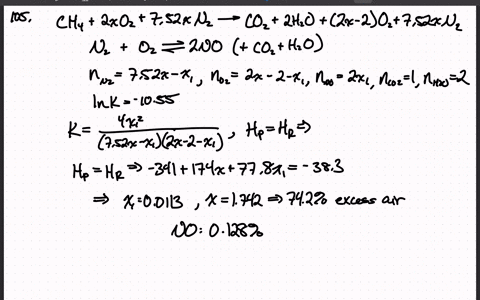 105. CH4 + 2xO2 + 7.52xN2 → CO2 + 2H2O + (2x-2)O2 + 7.52xN2
N2 + O2 ⇌ 2NO (+ CO2 + H2O)
nN2 = 7.52x - x1, nO2 = 2x - 2 - x1, nNO = 2x1, nCO2 = 1, nH2O = 2
ln K = -10.55
K = 4x1² / (7.52x - x1)(2x - 2 - x1), HP = HR ⇒
HP = HR ⇒ -341 + 174x + 77.8x1 = -38.3
⇒ x1 = 0.0113, x = 1.742 ⇒ 74.2% excess air
NO: 0.128%